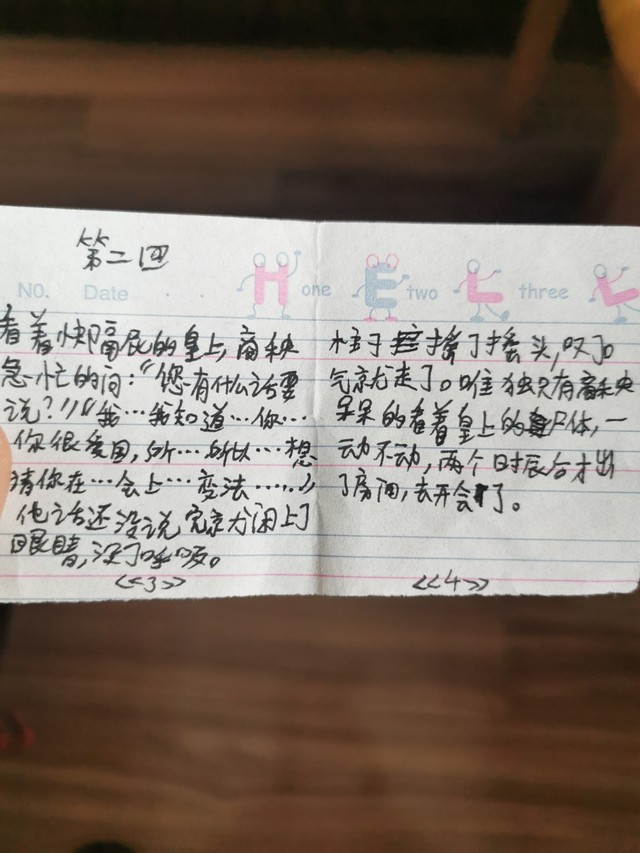 第二回
H one E two L three L
NO. Date
看着快嗝屁的皇上,商鞅
急忙的问:“您有什么话要
说?”“我…我知道…你…
你很爱国,所…所以…想
猜你在…会上…变法……”
他话还没说完就闭上了
眼睛,没了呼吸。
<<3>>
摇了摇头,叹了口
气就走了。唯独只有商鞅
呆呆的看着皇上的尸体,一
动不动,两个时辰后才出
了房间,去开会了。
<<4>>